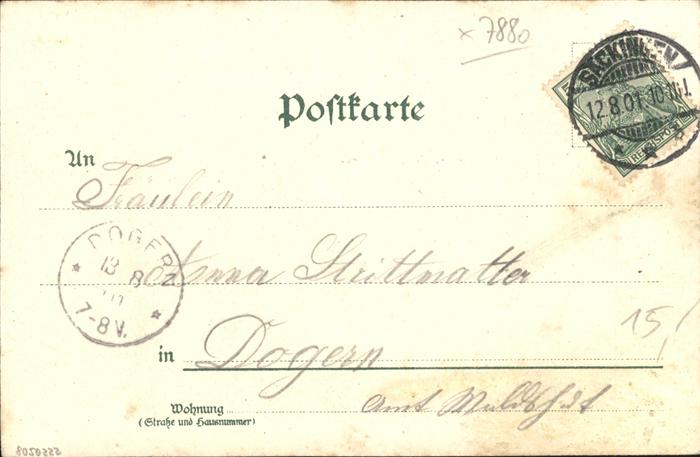 x 7880
SÄCKINGEN
12.8.01.10-11V.
REICHSPOST
Postkarte
An
Fräulein
DOGERN
13 8
01
7-8 V.
Anna Strittmatter
15,
in Dogern
Wohnung Amt Waldshut
(Straße und Hausnummer)
8020555